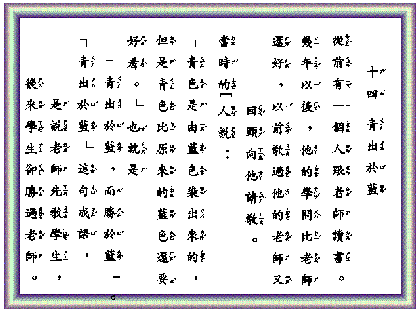 十四 青出於藍
從前有一個人跟老師讀書。
幾年以後,他的學問比老師
還好,以前教過他的老師又
回頭向他請教。
當時的人說:
「青色是由藍色染出來的,
但是青色比原來的藍色還要
好看。」也就是
「青出於藍,而勝於藍。」
「青出於藍」這句成語,
是說老師先教學生,
後來學生卻勝過老師。